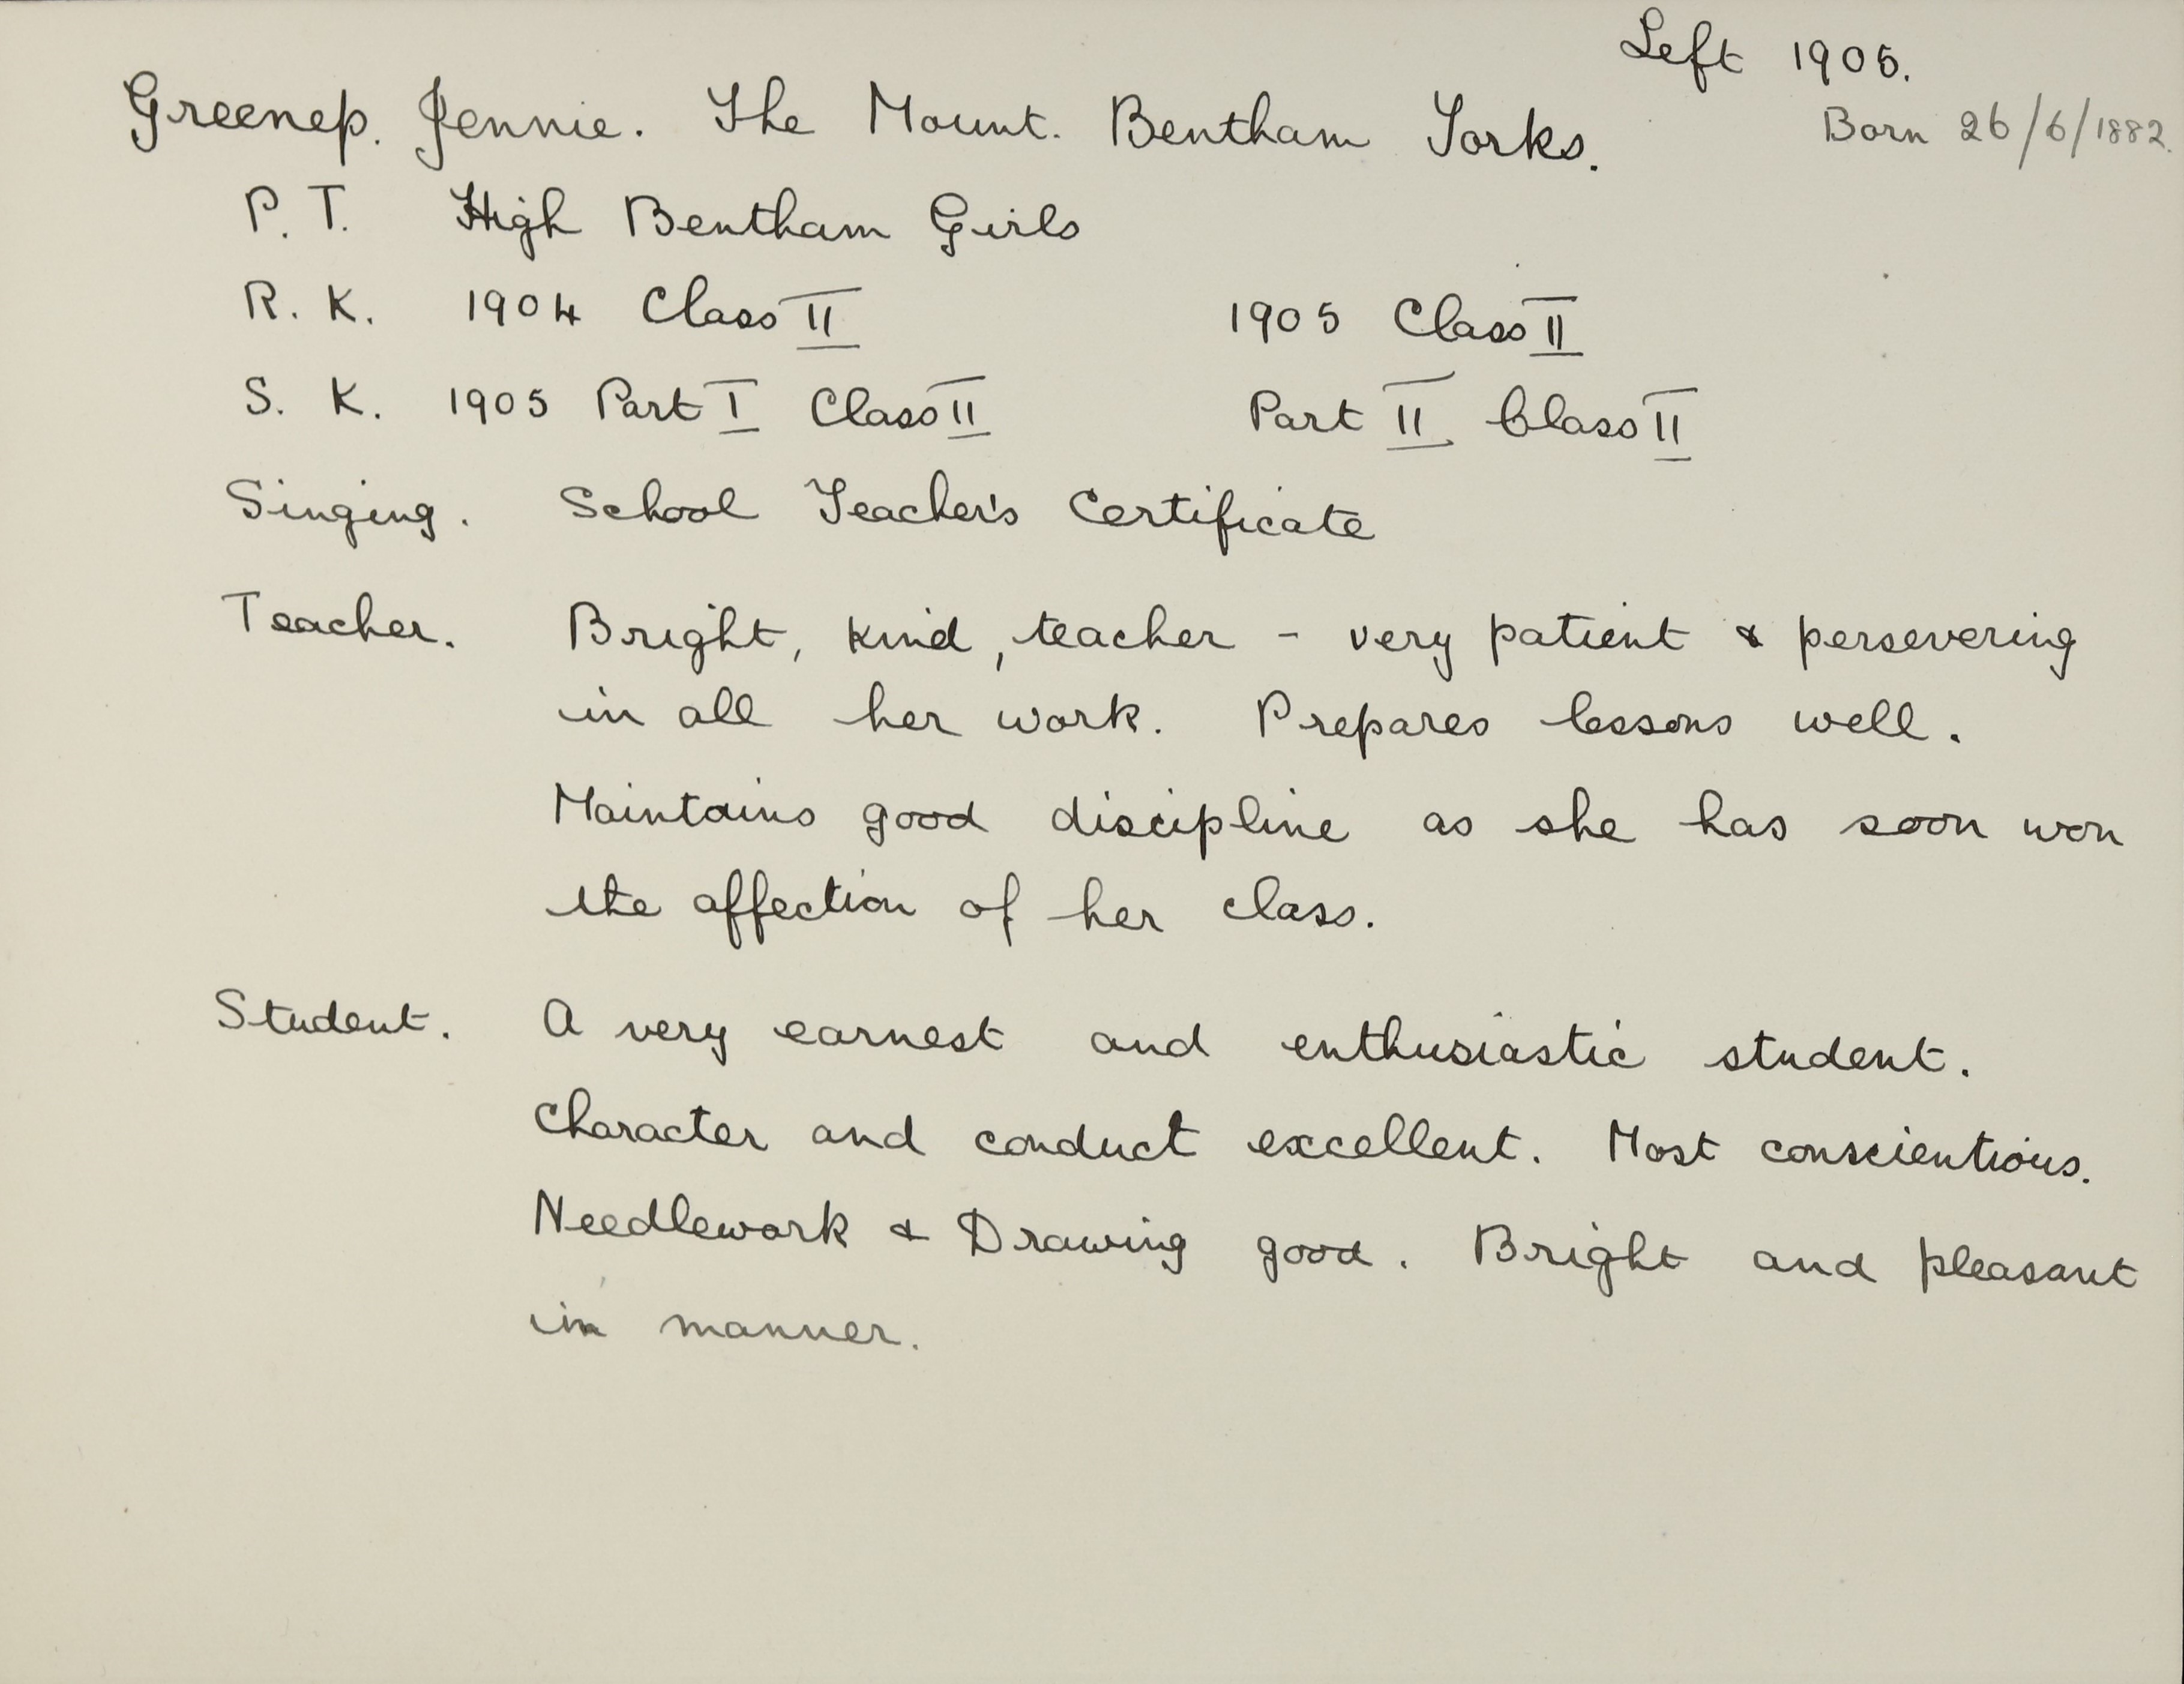 Left 1905.
Greenep. Jennie. The Mount. Bentham Yorks.
Born 26/6/1882.
P. T. High Bentham Girls
R. K. 1904 Class II 1905 Class II
S. K. 1905 Part I Class II Part II Class II
Singing. School Teacher's Certificate
Teacher. Bright, kind, teacher - very patient & persevering
in all her work. Prepares lessons well.
Maintains good discipline as she has soon won
the affection of her class.
Student. A very earnest and enthusiastic student.
Character and conduct excellent. Most conscientious.
Needlework & Drawing good. Bright and pleasant
in manner.